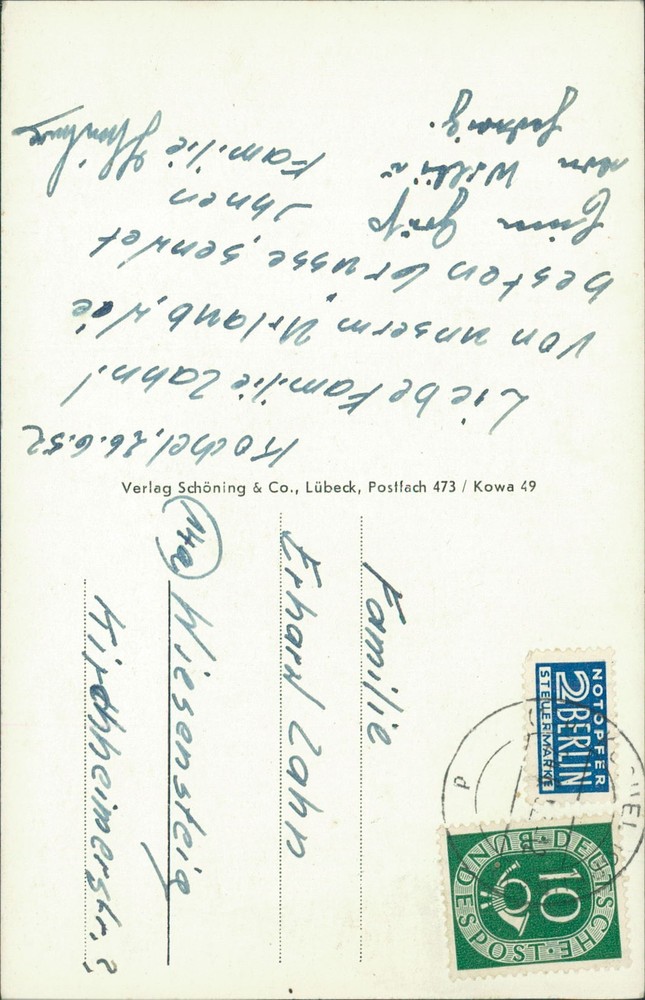 Kochel, 26.6.52
Liebe Familie Zahn!
Von unserm Urlaub, die
besten Grüsse, sendet
Ihnen
Familie
Einen Gruß
von Willi u
Hedwig.
Verlag Schöning & Co., Lübeck, Postfach 473 / Kowa 49
Familie
Erhard Zahn
(14a) Wiesensteig
Kirchheimerstr. 2
NOTOPFER
2 BERLIN
STEUERMARKE
DEUTSCHE
BUNDESPOST
10